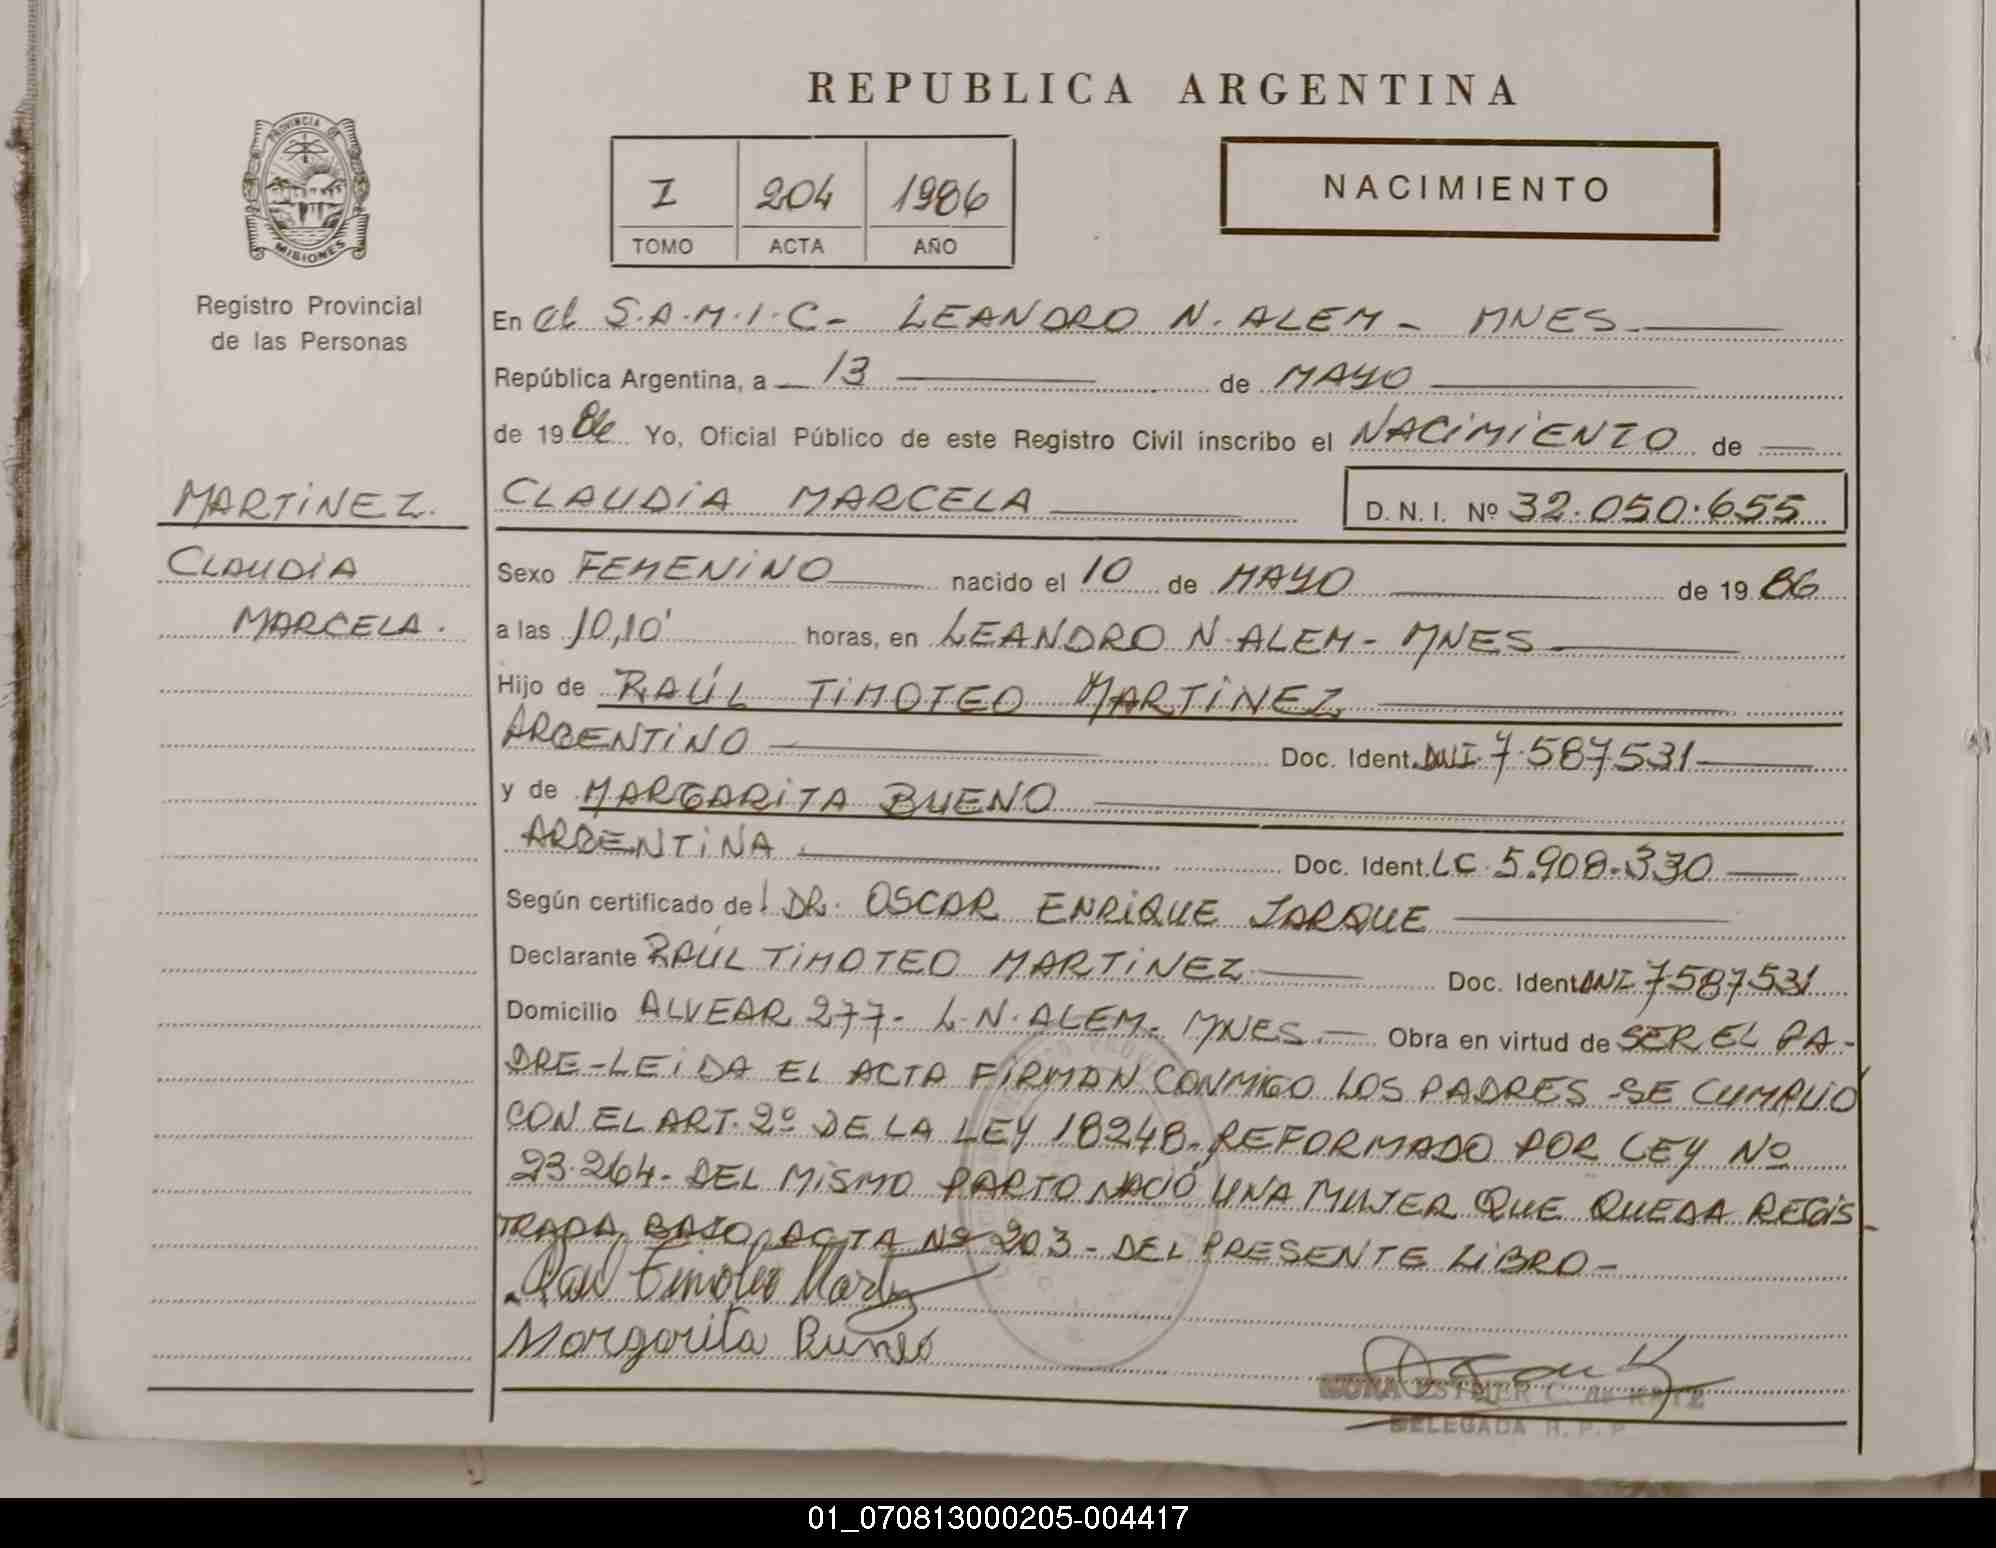 REPUBLICA ARGENTINA
PROVINCIA DE
MISIONES
Registro Provincial
de las Personas
I 204 1986
TOMO ACTA AÑO
NACIMIENTO
En el S.A.M.I.C- LEANDRO N. ALEM - MNES
República Argentina, a 13 de MAYO
de 1986 Yo, Oficial Público de este Registro Civil inscribo el NACIMIENTO de
MARTINEZ.
CLAUDIA MARCELA D.N.I. Nº 32.050.655
CLAUDIA
MARCELA.
Sexo FEMENINO nacido el 10 de MAYO de 1986
a las 10,10' horas, en LEANDRO N. ALEM - MNES
Hijo de RAÚL TIMOTEO MARTINEZ
ARGENTINO Doc. Ident. DNI 7.587531
y de MARGARITA BUENO
ARGENTINA Doc. Ident. LC. 5.908.330
Según certificado del DR. OSCAR ENRIQUE JARQUE
Declarante RAÚL TIMOTEO MARTINEZ Doc. Ident DNI 7587531
Domicilio ALVEAR 277- L.N. ALEM- MNES.- Obra en virtud de SER EL PA-
DRE-LEIDA EL ACTA FIRMAN CONMIGO LOS PADRES -SE CUMPLIO
CON EL ART. 2º DE LA LEY 18248- REFORMADO POR LEY Nº
23.264- DEL MISMO PARTO NACIÓ UNA MUJER QUE QUEDA REGIS
TRADA BAJO ACTA Nº 203- DEL PRESENTE LIBRO-
Raul Timoteo Martinez
Margarita Bueno
NORA ESTHER C. de KATZ
DELEGADA R. P. P
01_070813000205-004417